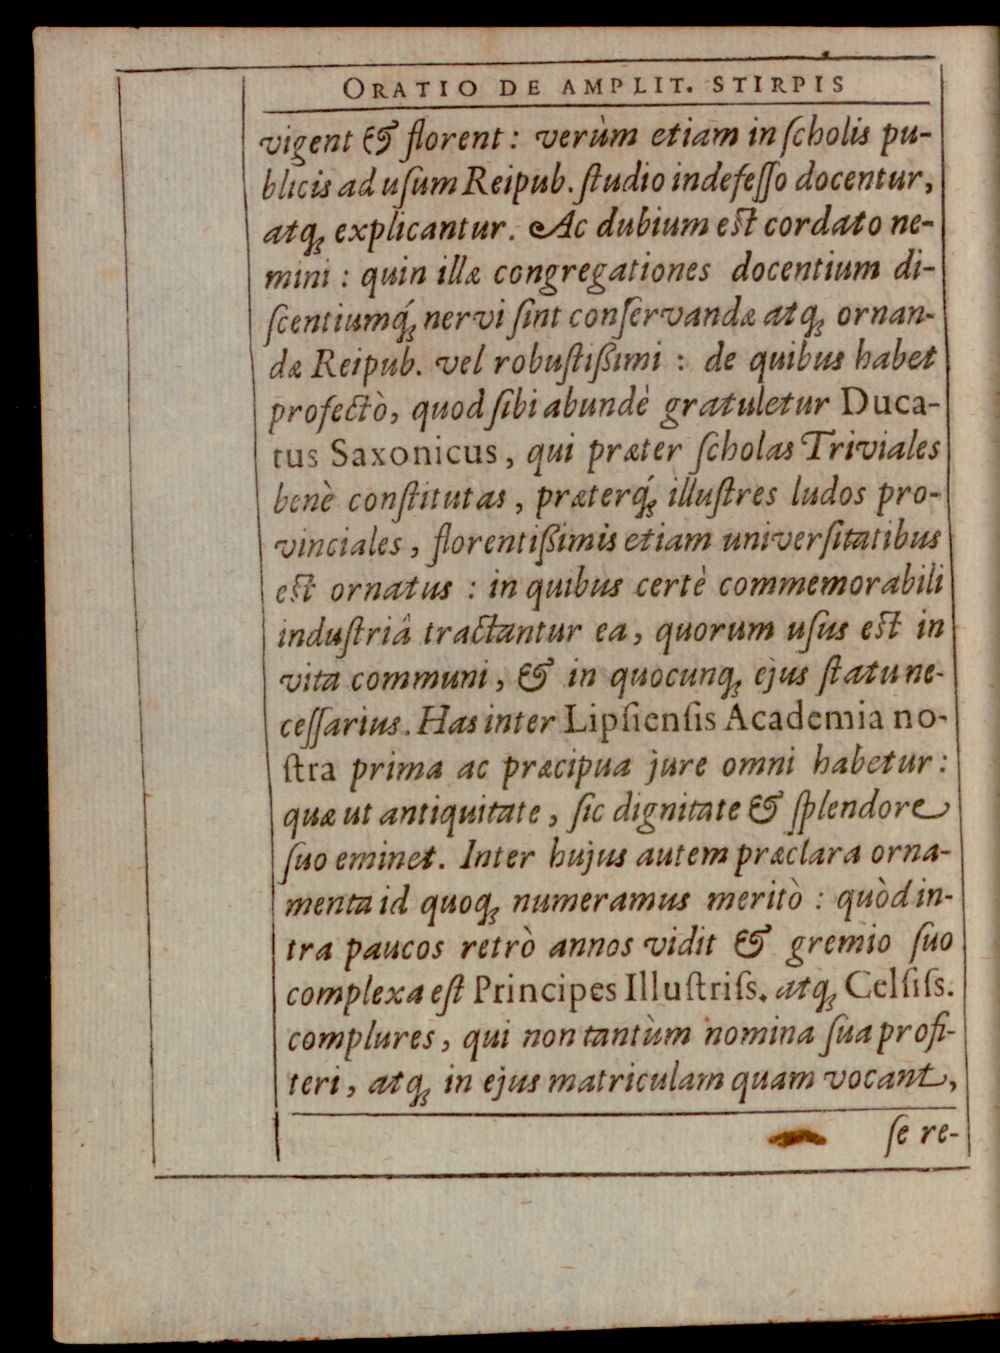 ORATIO DE AMPLIT. STIRPIS
vigent & florent: verùm etiam in ſcholis pu-
blicis ad uſum Reipub. ſtudio indefeſſo docentur,
atq; explicantur. Ac dubium eſt cordato ne-
mini: quin illæ congregationes docentium di-
ſcentiumq́; nervi ſint conſervandæ atq; ornan-
dæ Reipub. vel robuſtißimi: de quibus habet
profectò, quod ſibi abundè gratuletur Duca-
tus Saxonicus, qui præter ſcholas Triviales
benè conſtitutas, præterq́; illuſtres ludos pro-
vinciales, florentißimis etiam univerſitatibus
eſt ornatus: in quibus certè commemorabili
induſtriâ tractantur ea, quorum uſus eſt in
vita communi, & in quocunq; ejus ſtatu ne-
ceſſarius. Has inter Lipſienſis Academia no-
ſtra prima ac præcipua jure omni habetur:
quæ ut antiquitate, ſic dignitate & ſplendore
ſuo eminet. Inter hujus autem præclara orna-
menta id quoq; numeramus meritò: quòd in-
tra paucos retrò annos vidit & gremio ſuo
complexa eſt Principes Illuſtriſs. atq; Celſiſs.
complures, qui non tantùm nomina ſua profi-
teri, atq; in ejus matriculam quam vocant,
ſe re-